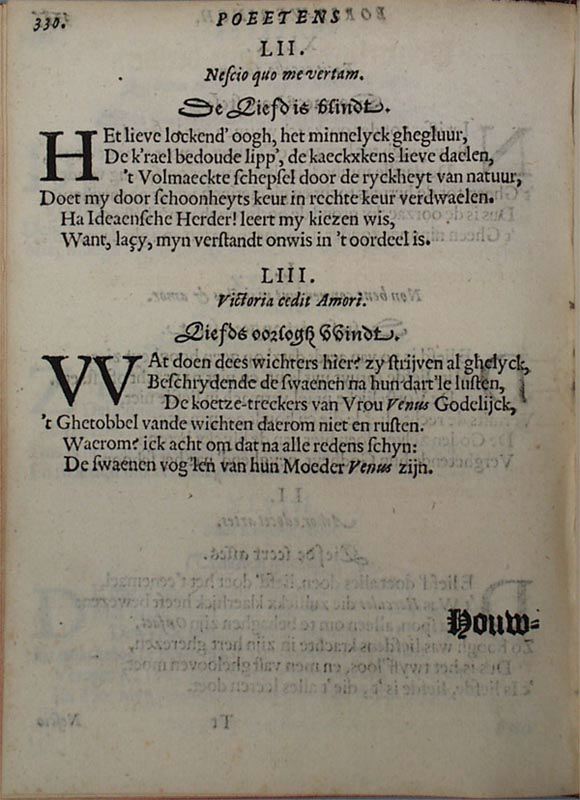 330.
POEETENS
LII.
Neſcio quo me vertam.
De Liefd is blindt.
HEt lieve lockend' oogh, het minnelyck ghegluur,
De k'rael bedoude lipp', de kaeckxkens lieve daelen,
't Volmaeckte ſchepſel door de ryckheyt van natuur,
Doet my door ſchoonheyts keur in rechte keur verdwaelen.
Ha Ideaenſche Herder! leert my kiezen wis,
Want, laçy, myn verſtandt onwis in 't oordeel is.
LIII.
Victoria cedit Amori.
Liefds oorlogh VVindt.
VVAt doen dees wichters hier? zy ſtrijven al ghelyck,
Beſchrydende de ſwaenen na hun dart'le luſten,
De koetze-treckers van Vrou Venus Godelijck,
't Ghetobbel vande wichten daerom niet en ruſten.
Waerom? ick acht om dat na alle redens ſchyn:
De ſwaenen vog'len van hun Moeder Venus zijn.
Houw-